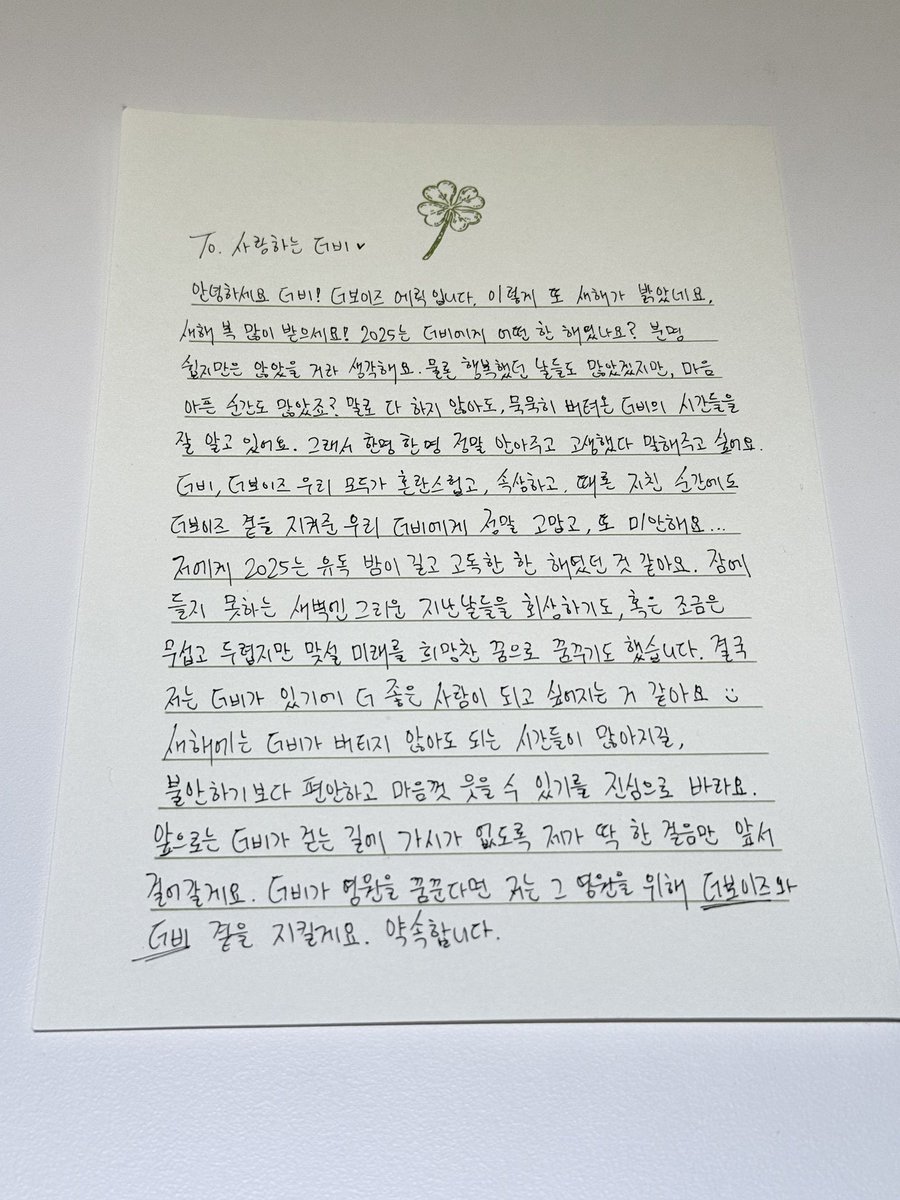 To. 사랑하는 더비♥
안녕하세요 더비! 더보이즈 에릭입니다. 이렇게 또 새해가 밝았네요,
새해 복 많이 받으세요! 2025는 더비에게 어떤 한 해였나요? 분명
쉽지만은 않았을 거라 생각해요. 물론 행복했던 날들도 많았겠지만, 마음
아픈 순간도 많았죠? 말로 다 하지 않아도, 묵묵히 버텨온 더비의 시간들을
잘 알고 있어요. 그래서 한명 한명 정말 안아주고 고생했다 말해주고 싶어요.
더비, 더보이즈 우리 모두가 혼란스럽고, 속상하고, 때론 지친 순간에도
더보이즈 곁을 지켜준 우리 더비에게 정말 고맙고, 또 미안해요...
저에게 2025는 유독 밤이 길고 고독한 한 해였던 것 같아요. 잠에
들지 못하는 새벽엔 그리운 지난날들을 회상하기도, 혹은 조금은
무섭고 두렵지만 맞설 미래를 희망찬 꿈으로 꿈꾸기도 했습니다. 결국
저는 더비가 있기에 더 좋은 사람이 되고 싶어지는 거 같아요 :)
새해에는 더비가 버티지 않아도 되는 시간들이 많아지길,
불안하기보다 편안하고 마음껏 웃을 수 있기를 진심으로 바라요.
앞으로는 더비가 걷는 길에 가시가 없도록 제가 딱 한 걸음만 앞서
걸어갈게요. 더비가 영원을 꿈꾼다면 저는 그 영원을 위해 더보이즈와
더비 곁을 지킬게요. 약속합니다.